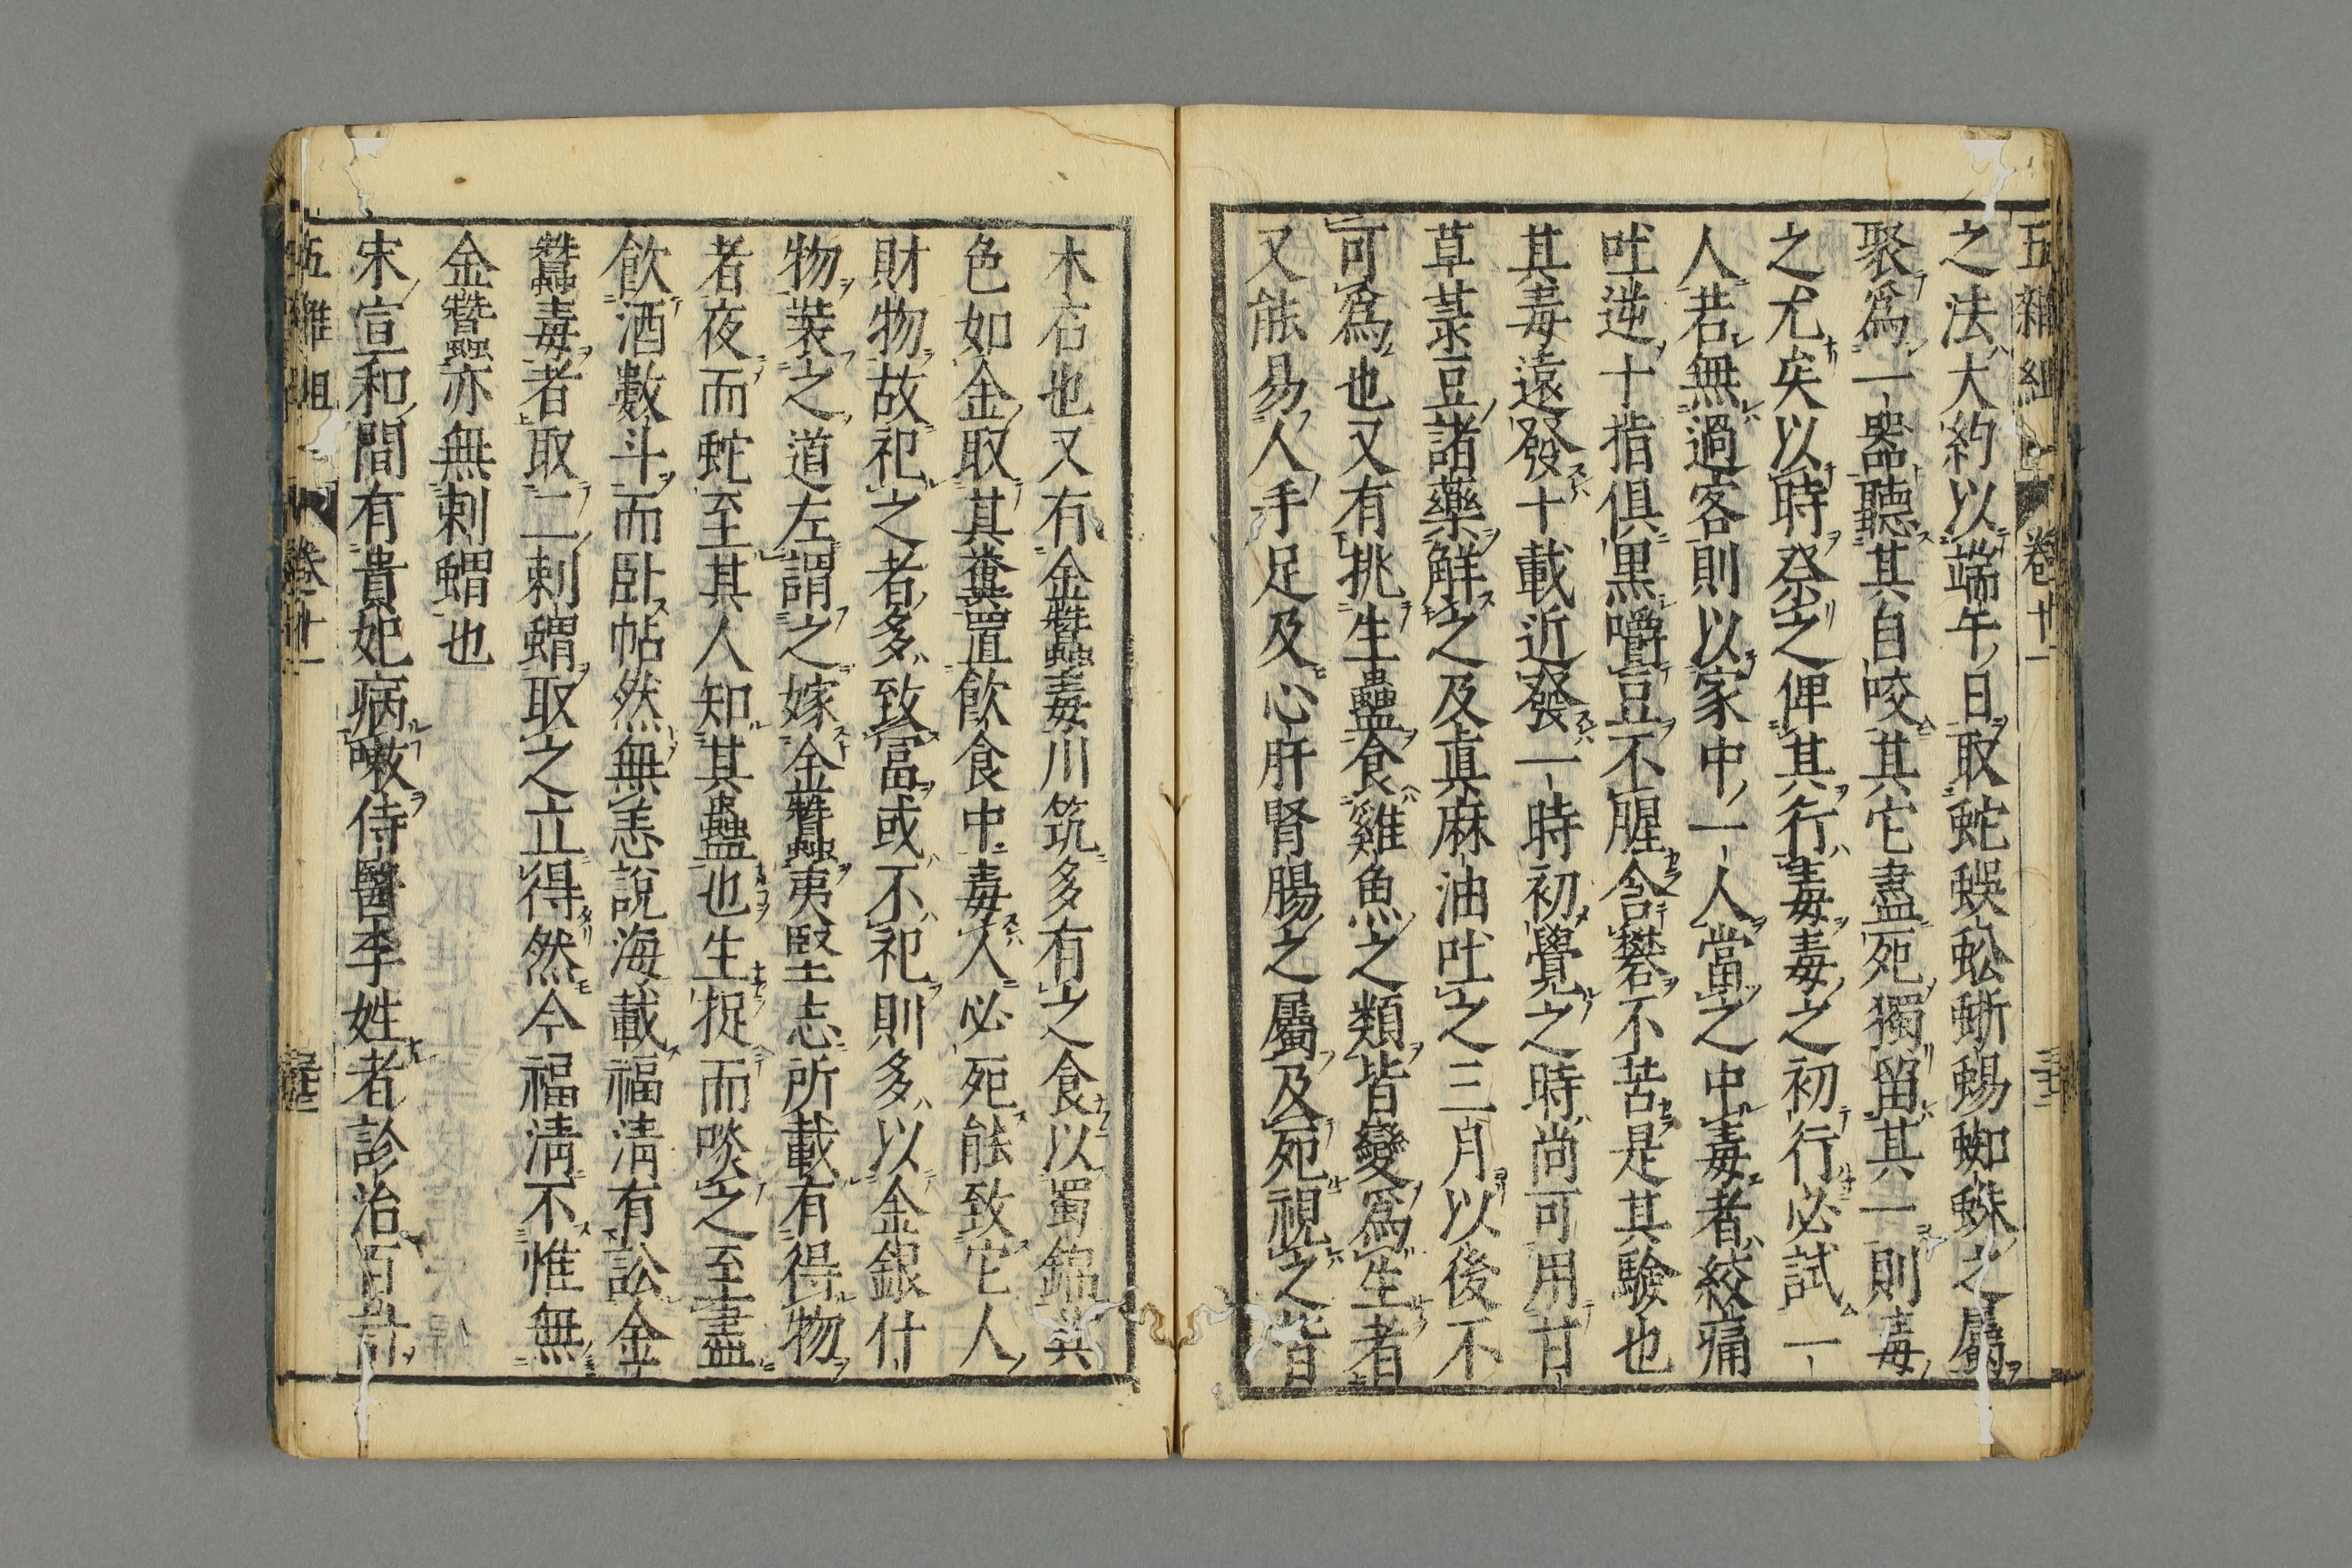 五雜組 卷十一
之法大約以端午日取蛇蜈蚣蜥蜴蜘蛛之屬
聚爲一器聽其自咬其它盡死獨留其一則毒
之尤矣以時祭之俾其行毒毒之初行必試一
人若無過客則以家中一人當之中毒者絞痛
吐逆十指俱黒嚼豆不腥含礬不苦是其驗也
其毒遠發十載近發一時初覺之時尚可用甘
草菉豆諸藥解之及真麻油吐之三月以後不
可爲也又有挑生蠱食雞魚之類皆變爲生者
又能易人手足及心肝腎腸之屬及死視之皆
木石也又有金蠶毒川筑多有之食以蜀錦其
色如金取其糞置飲食中毒人必死能致它人
財物故祀之者多致富或不祀則多以金銀什
物裝之道左謂之嫁金蠶夷堅志所載有得物
者夜而蛇至其人知其蠱也生捉而啖之至盡
飲酒數斗而臥帖然無恙說海載福清有訟金
蠶毒者取二刺蝟取之立得然今福清不惟無
金蠶亦無刺蝟也
宋宣和間有貴妃病嗽侍醫李姓者診治百計
五雜組 卷十一